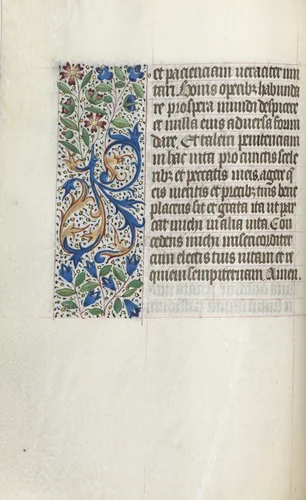 et pacienciam veraciter imi
tari. bonis operibz habunda
re prospera mundi despicere
et nulla eius adversa formi
dare. Et talem penitenciam
in hac vita pro cunctis scele
ribz et peccatis meis, agere q
meritis et precibz tuis
placens sit et grata ita ut par
cat michi in alia vita. Con
cedens michi misericorditer
cum electis tuis vitam et re
quiem sempiternam. Amen.